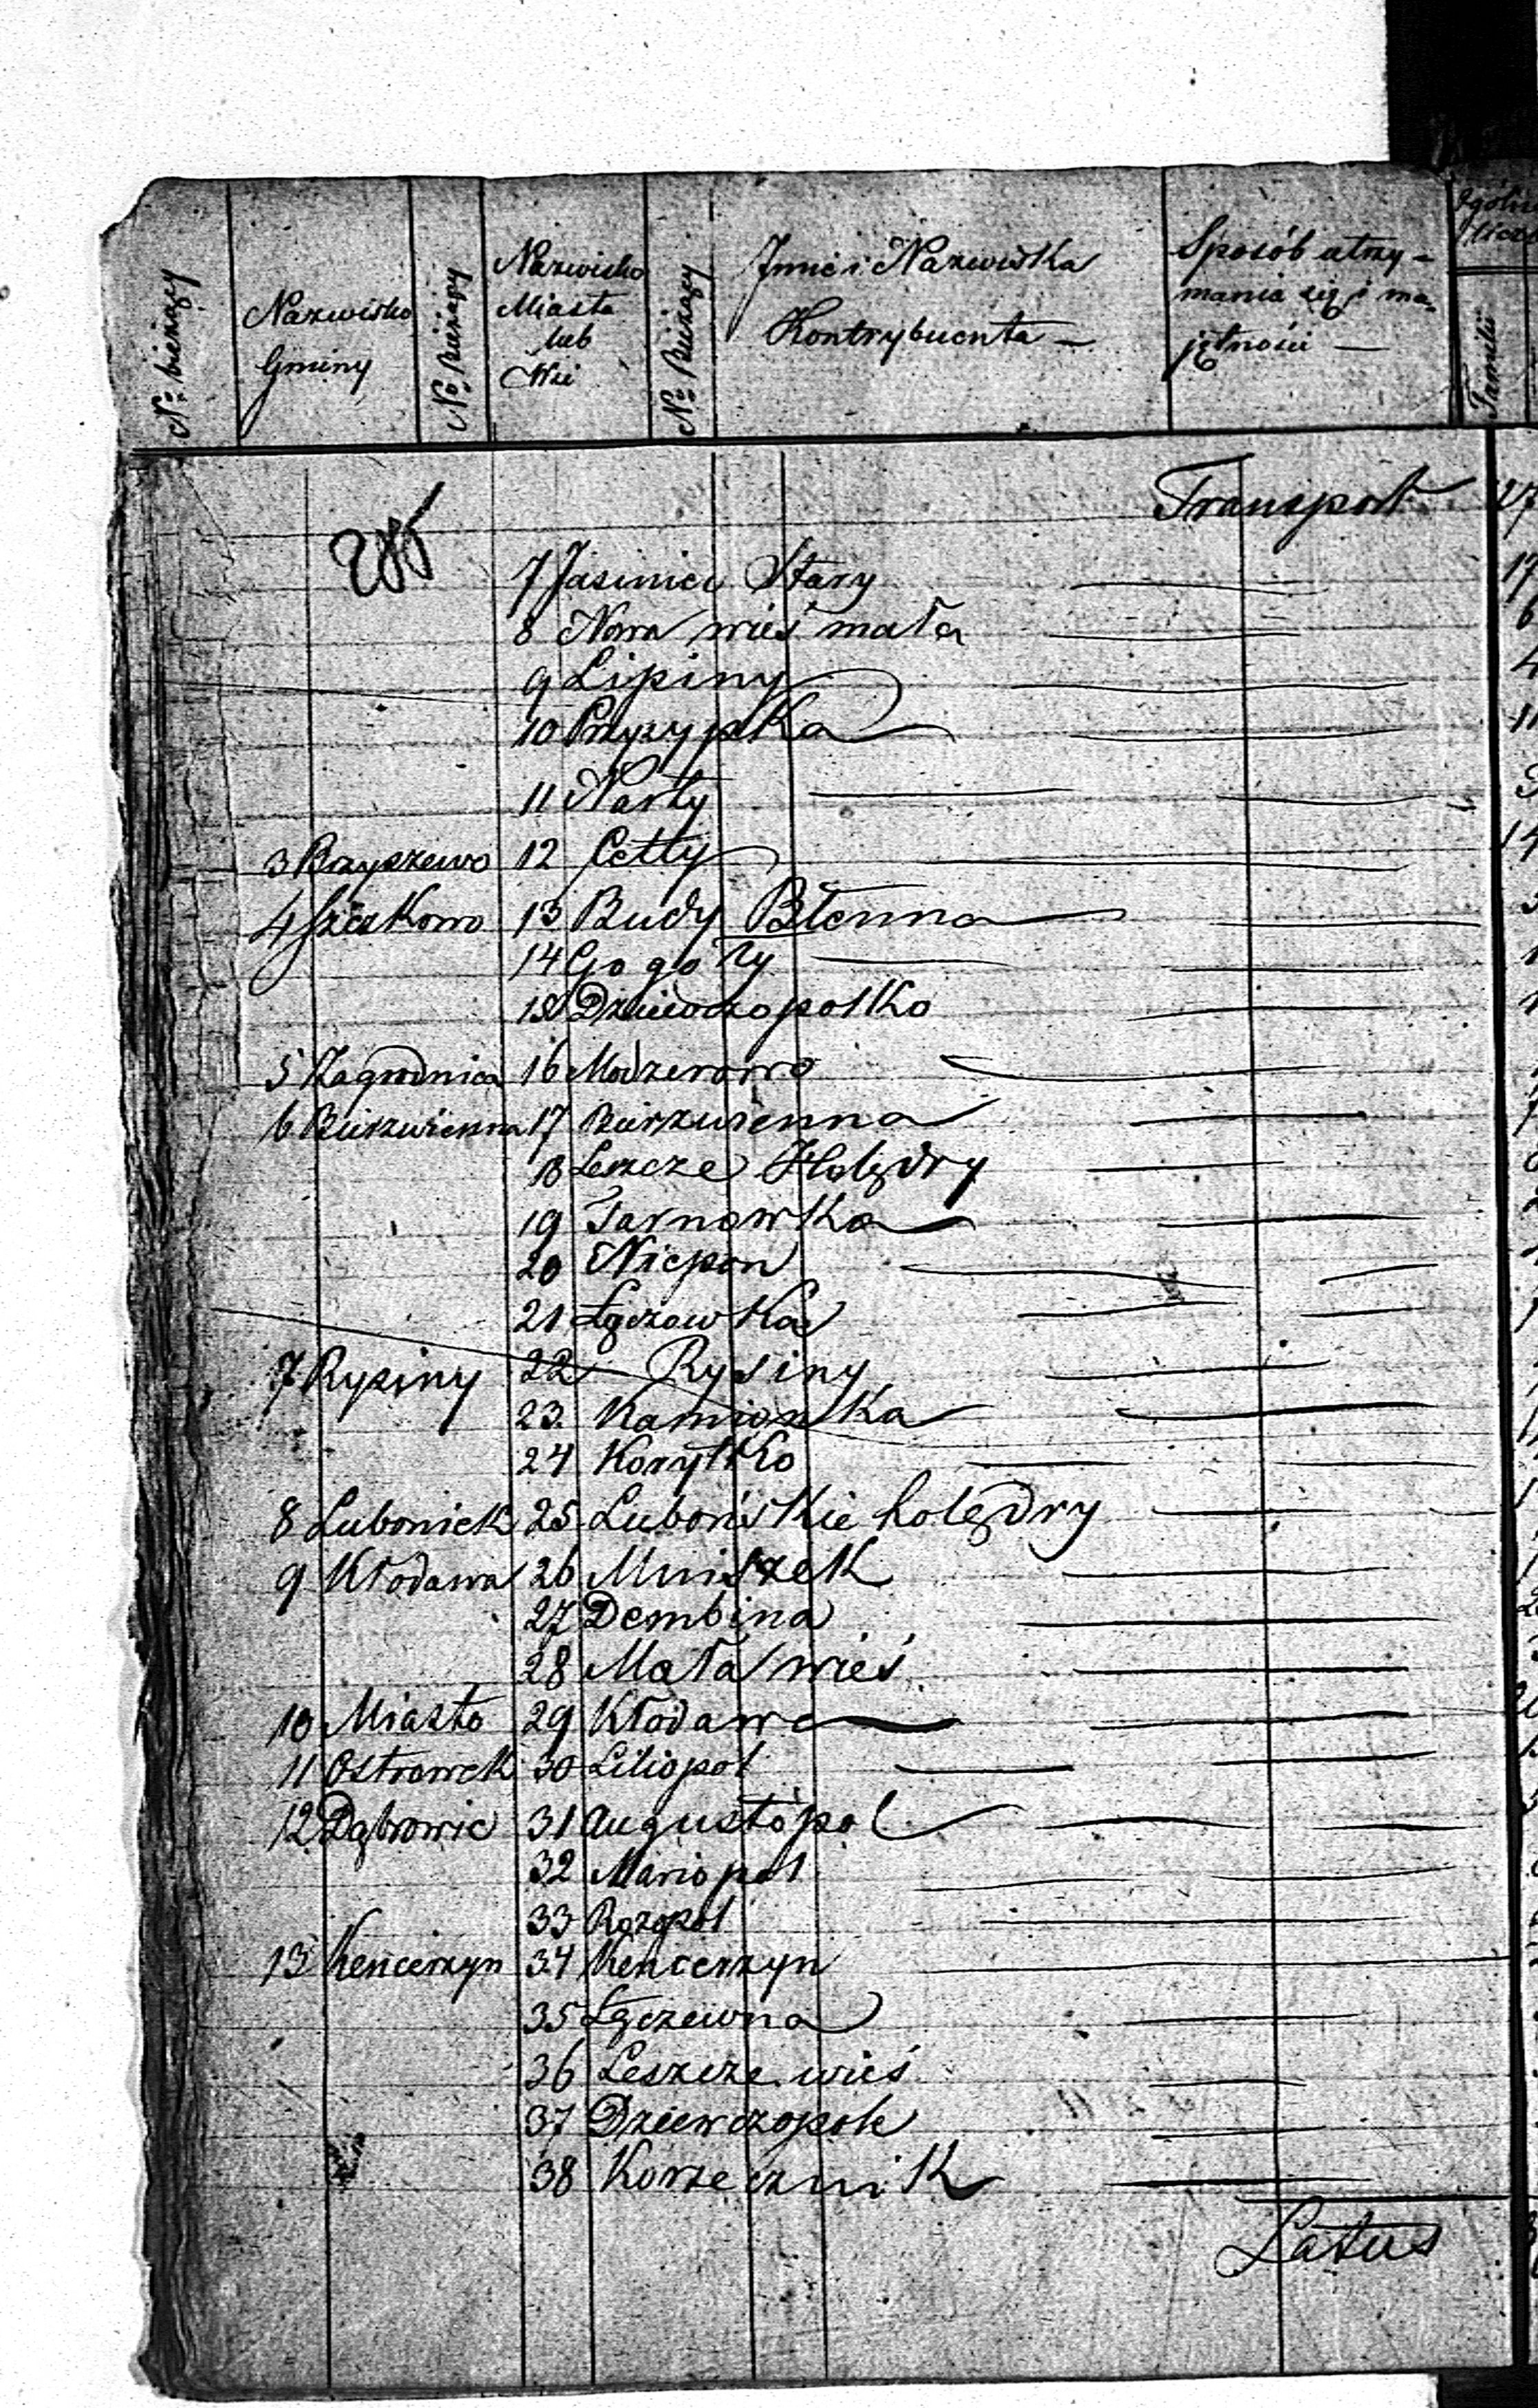 No bieżący
Nazwisko
Gminy
No Bieżący
Nazwisko
Miasta
lub
Wsi
No Bieżący
Imie i Nazwiska
Kontrybuenta —
Sposób utrzy-
mania się i ma-
jętności —
Familii
Transport
7 Jasiniec Stary
8 Nowa wieś mała
9 Lipiny
10 Przyzypka
11 Narty
3 Brzyszewo 12 Cetty
4 Szczkowo 13 Budy Błenna
14 Gogóły
15 Dziewczopolko
5 Zagrodnica 16 Modzerowo
6 Bierzwienna 17 Bierzwienna
18 Leszcze Holędry
19 Tarnowka
20 Niepon
21 Łączowka
7 Rysiny 22 Rysiny
23 Kamionka
24 Korytko
8 Luboniek 25 Lubońskie holędry
9 Kłodawa 26 Mniszek
27 Dembina
28 Mała wieś
10 Miasto 29 Kłodawa
11 Ostrowek 30 Liliopol
12 Dąbrowic 31 Augustopol
32 Mariopol
33 Rozopol
13 Kencerzyn 34 Kencerzyn
35 Łączewna
36 Leszcze wieś
37 Dziewczopole
38 Korzecznik
Latus